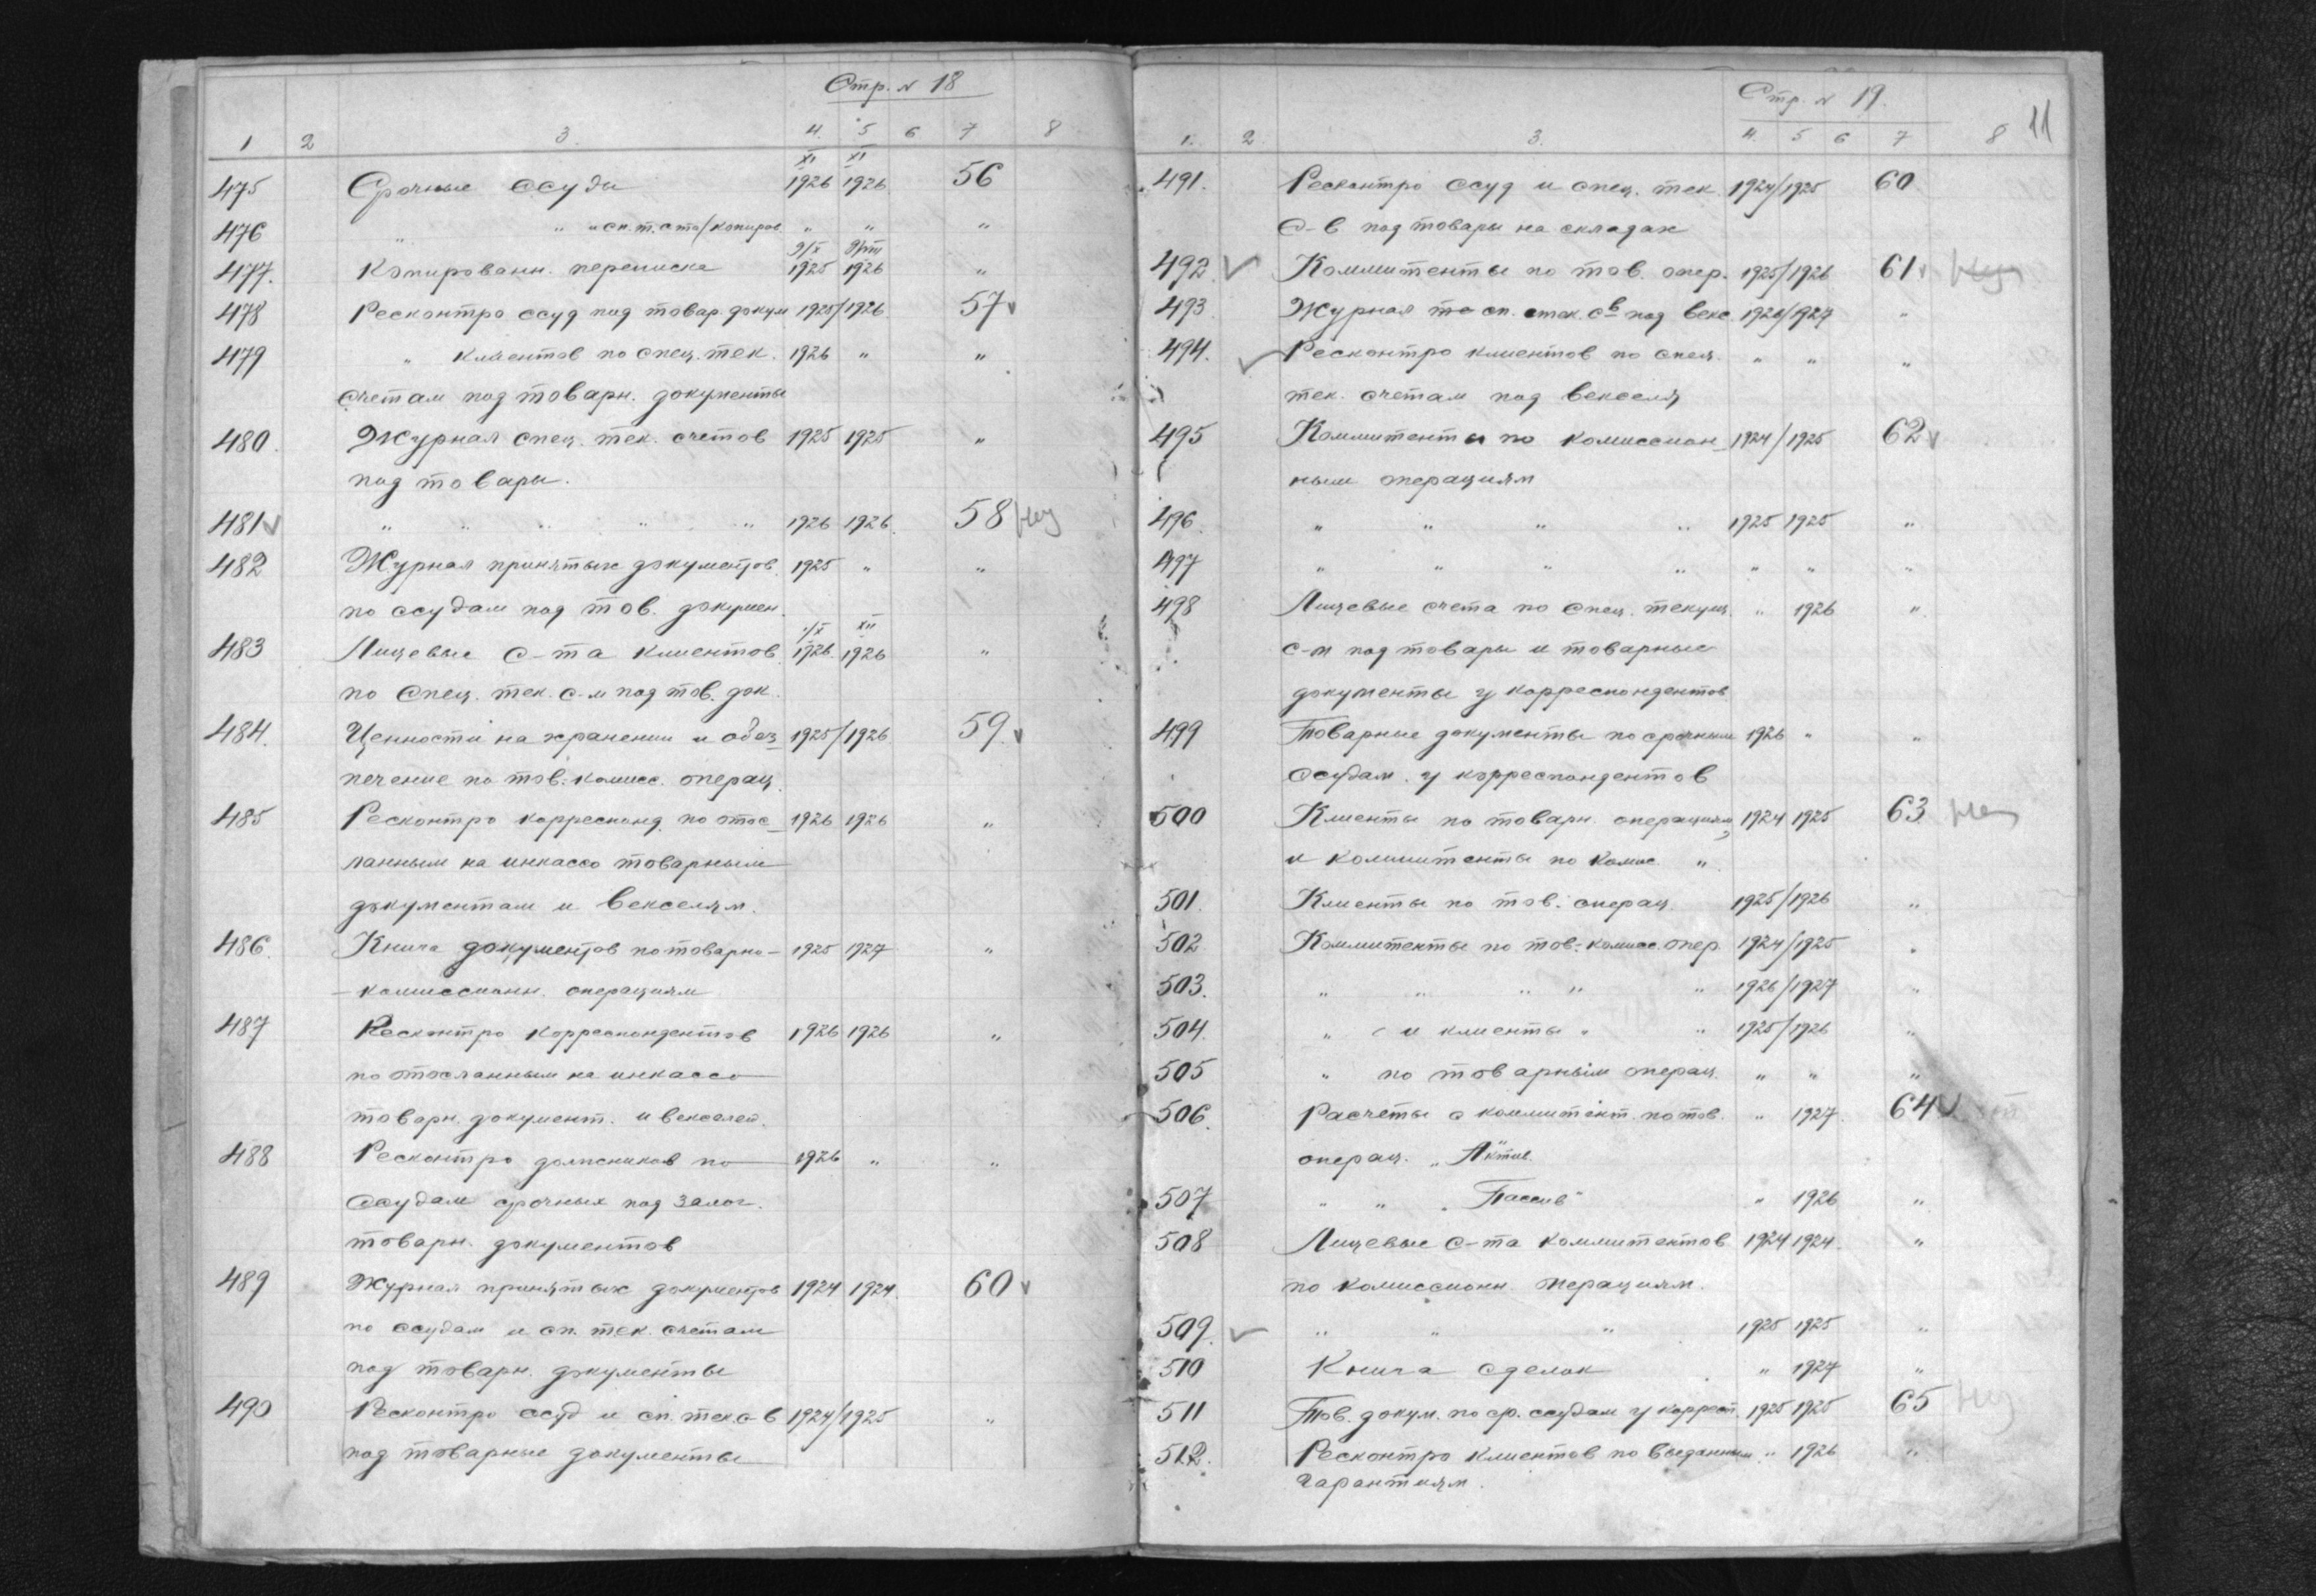 Стр. № 18
1 2 3 4. 5 6 7 8
XI XI
475 Срочные ссуды 1926 1926. 56
476 " " и сп. т. с-та/копиров " " "
9/X
477. Копированн. переписка 1925 1926 "
478 Ресконтро ссуд под товар. докум 1925/1926 57
479 " клиентов по спец. тек. 1926 " "
счетам под товарн. документы
480. Журнал спец. тек. счетов 1925 1925 "
под товары.
481 " " " " " 1926 1926. 58
482 Журнал принятых документов 1925 " "
по ссудам под тов. докумен.
1/X XII
483 Лицевые с-та клиентов 1926. 1926 "
по спец. тек. с-м под тов. док.
484. Ценности на хранении и обез- 1925/1926 59.
печение по тов. комисс. операц.
485 Ресконтро корреспонд. по отос- 1926 1926 "
ланным на инкассо товарным
документам и векселям.
486. Книга документов по товарно- 1925 1927 "
-комиссионн. операциям
487 Ресконтро корреспондентов 1926 1926 "
по отосланным на инкассо
товарн. документ. и векселей.
488 Ресконтро должников по 1926 " "
ссудам срочных под залог.
товарн. документов
489 Журнал принятых документов 1924 1924. 60
по ссудам и сп. тек. счетам
под товарн. документы
490 Ресконтро ссуд и сп. тек. с-в 1924/1925 "
под товарные документы
Стр. № 19.
11
1. 2. 3. 4. 5 6 7 8
491. Ресконтро ссуд и спец. тек. 1924/1925 60
с-в под товары на складах
492. Коммитенты по тов. опер. 1925/1926 61
493 Журнал по сп. тек. с-в под векс. 1926/1927 "
494. Ресконтро клиентов по спец. " " "
тек. счетам под векселя
495 Коммитенты по комиссион- 1924/1925 62
ным операциям
496. " " " " 1925 1925 "
497 " " " " " " "
498 Лицевые счета по спец. текущ. " 1926 "
с-м под товары и товарные
документы у корреспондентов
499 Товарные документы по срочным 1926 " "
ссудам у корреспондентов
500 Клиенты по товарн. операциям 1924 1925 63
и коммитенты по комис. "
501. Клиенты по тов. операц. 1925/1926 "
502 Коммитенты по тов.-комисс. опер. 1924/1925 "
503. " " " " " 1926/1927 "
504. " и клиенты " " 1925/1926 "
505 " по товарным операц. " " "
506. Расчеты с коммитент. по тов. " 1927. 64
операц. "Актив"
507 " " "Пассив" " 1926 "
508 Лицевые с-та коммитентов 1924 1924. "
по комиссионн. операциям.
509. " " " 1925 1925 "
510 Книга сделок " 1927 "
511 Тов. докум. по ср. ссудам у коррест. 1925 1925 65
512. Ресконтро клиентов по выданным " 1926 "
гарантиям.